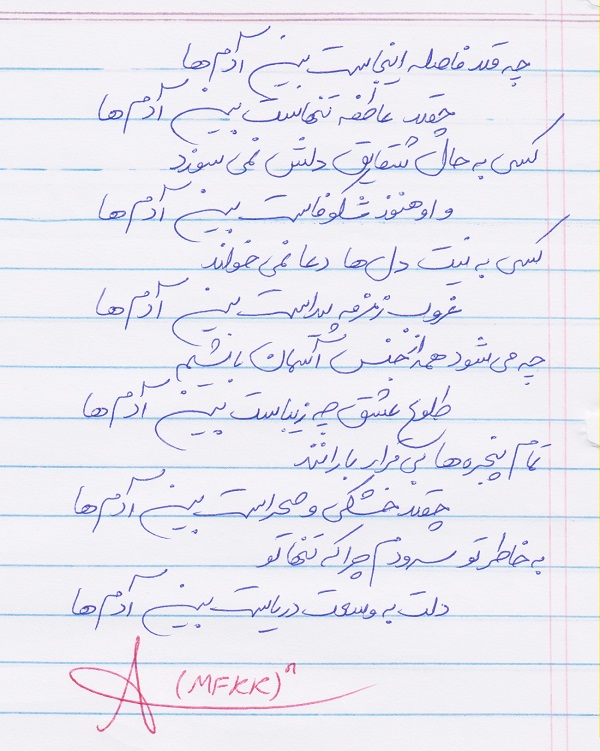 چه قدر فاصله اینجاست بین آدم‌ها
چقدر عاطفه تنهاست بین آدم‌ها
کسی به حال شقایق دلش نمی سوزد
و او هنوز شکوفاست بین آدم‌ها
کسی به نیت دل‌ها دعا نمی خواند
غروب زمزمه پیداست بین آدم‌ها
چه می شود همه از جنس آسمان باشیم
طلوع عشق چه زیباست بین آدم‌ها
تمام پنجره‌ها بی قرار بارانند
چقدر خشکی و صحراست بین آدم‌ها
به خاطر تو سرودم چرا که تنها تو
دلت به وسعت دریاست بین آدم‌ها
(MFKK)ⁿ